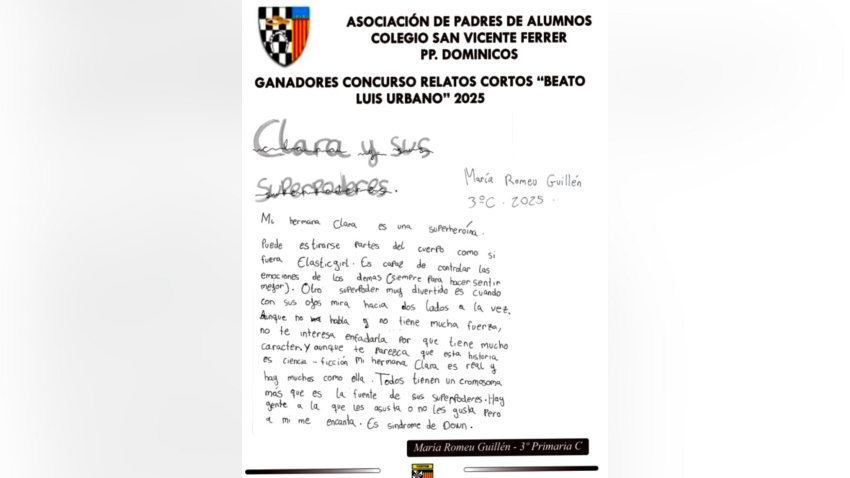 ASOCIACIÓN DE PADRES DE ALUMNOS
COLEGIO SAN VICENTE FERRER
PP. DOMINICOS
GANADORES CONCURSO RELATOS CORTOS “BEATO
LUIS URBANO” 2025
Clara y sus
superpoderes.
María Romeu Guillén
3ºC. 2025.
Mi hermana Clara es una superheroína.
Puede estirarse partes del cuerpo como si
fuera Elasticgirl. Es capaz de controlar las
emociones de los demas (siempre para hacer sentir
mejor). Otro superpoder muy divertido es cuando
con sus ojos mira hacia dos lados a la vez.
Aunque no habla y no tiene mucha fuerza,
no te interesa enfadarla por que tiene mucho
caracter. Y aunque te parezca que esta historia
es ciencia-ficción mi hermana Clara es real y
hay muchos como ella. Todos tienen un cromosoma
más que es la fuente de sus superpoderes. Hay
gente a la que les asusta o no les gusta pero
a mi me encanta. Es sindrome de Down.
María Romeu Guillén - 3º Primaria C